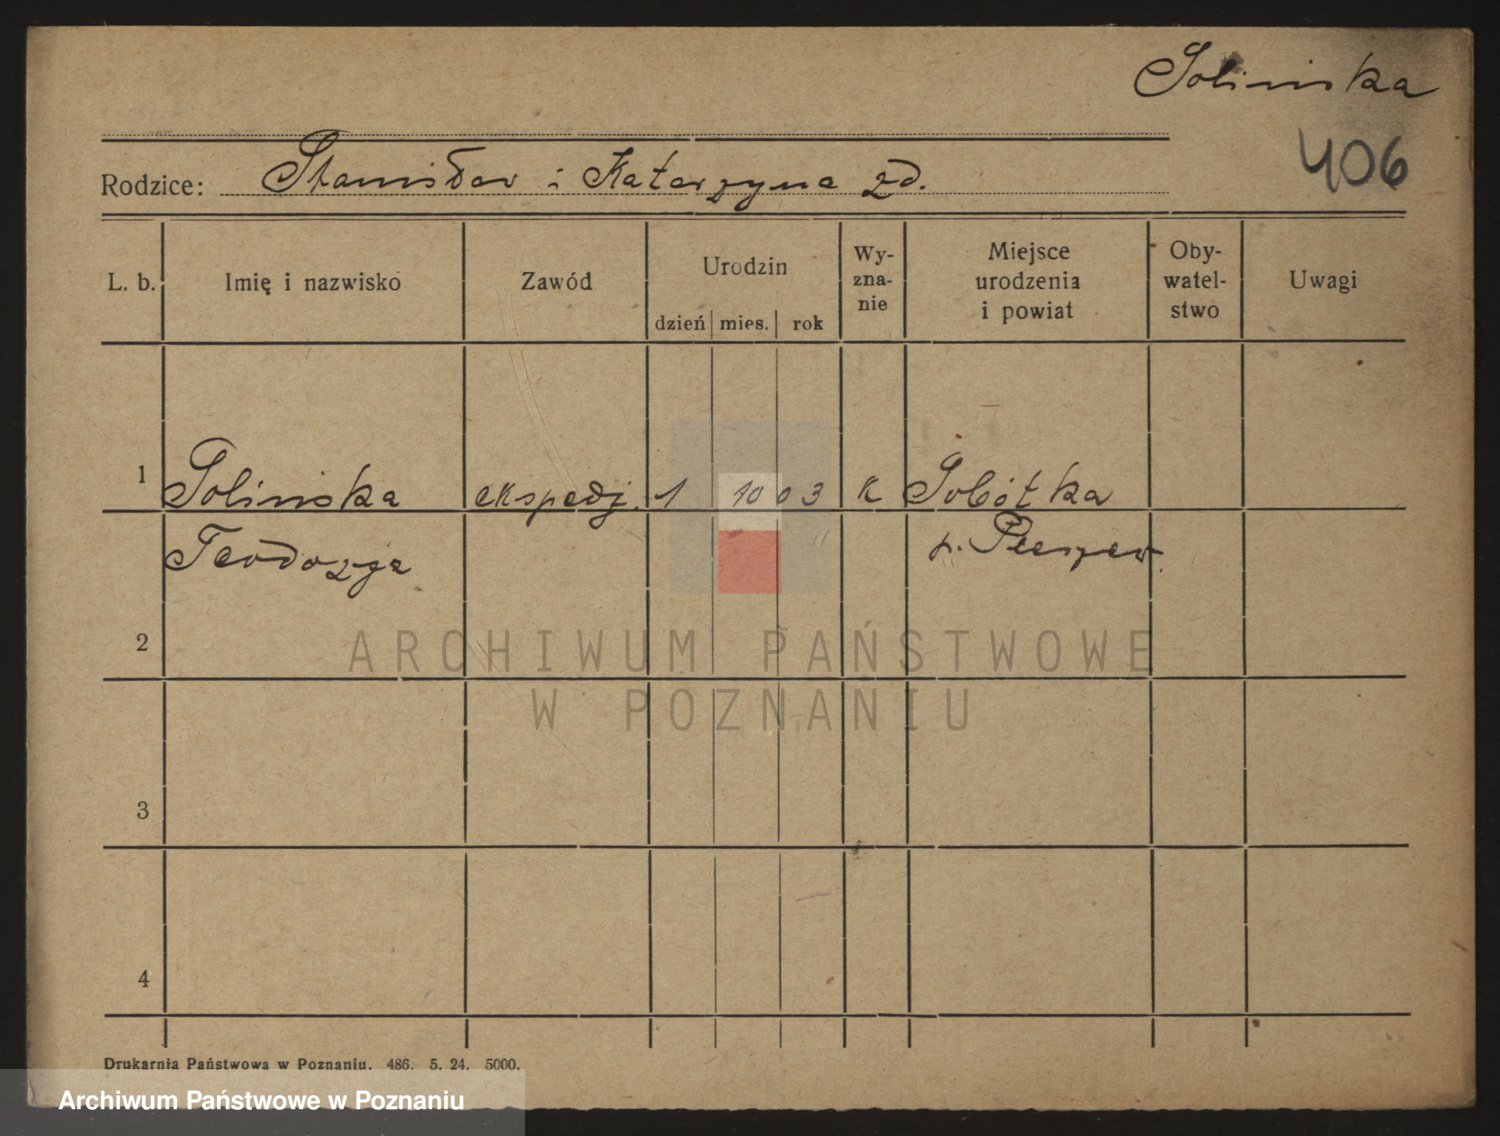 Solinska
406
Rodzice: Stanisław i Katarzyna zd.
L. b. Imię i nazwisko Zawód Urodzin dzień mies. rok Wy-zna-nie Miejsce urodzenia i powiat Oby-watel-stwo Uwagi
1 Solinska ekspedj. 1 10 03 k Sobótka
Teodozja p. Pleszew.
2
ARCHIWUM PAŃSTWOWE
W POZNANIU
3
4
Drukarnia Państwowa w Poznaniu. 486. 5. 24. 5000.
Archiwum Państwowe w Poznaniu